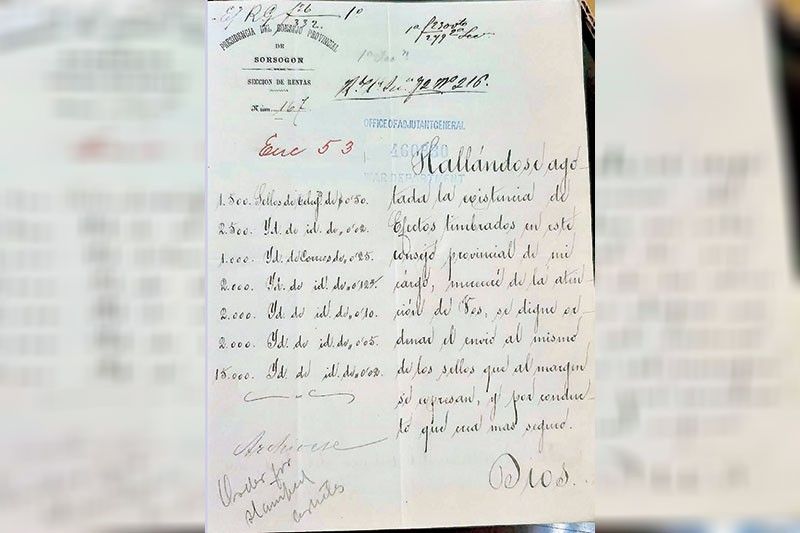 E/ R G fº 6
332. 1º
PRESIDENCIA DEL CONSEJO PROVINCIAL
DE
SORSOGON
SECCION DE RENTAS
Núm. 167
279 2ª Sec
Nº 216.
OFFICE OF ADJUTANT GENERAL
460330
WAR DEPARTMENT
Enc 53
1.500. Sellos de Telegs. de pº 0'50.
2.500 Yd. de id. de, 0'02.
1.000. Yd. de Correos de, 0'25.
2.000. Yd. de id. de, 0'12 4/8.
2.000. Yd. de id. de, 0'10.
2.000. Yd. de id. de, 0'05.
15.000. Yd. de id. de, 0'02.
Hallándose ago-
tada la existencia de
Efectos timbrados en este
consejo provincial de mi
cargo, mereceré de la aten-
ción de Vos, se digne or-
denar el envió al mismo
de los sellos que al margen
se expresan, y por conduc-
to que crea mas seguro.
Dios.
Archivese
Order for
stamped